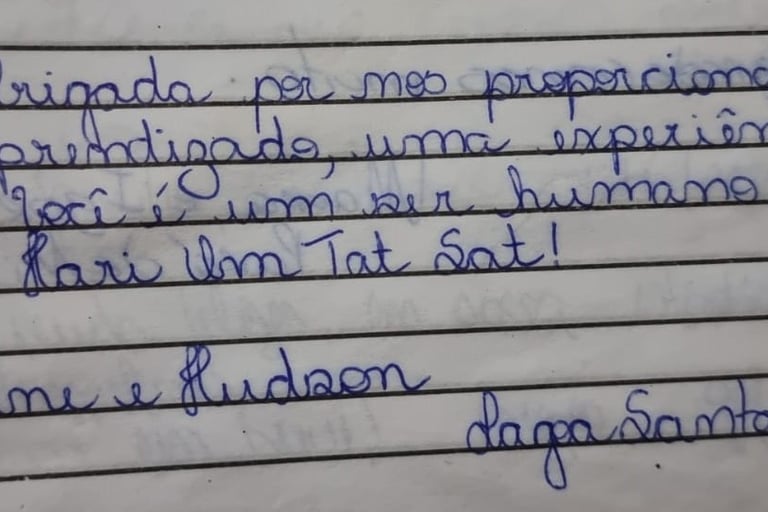 brigada por nos proporciona
prendizado, uma experiên
Você é um ser humano
Hari Om Tat Sat!
ne e Hudson
Lagoa Santa